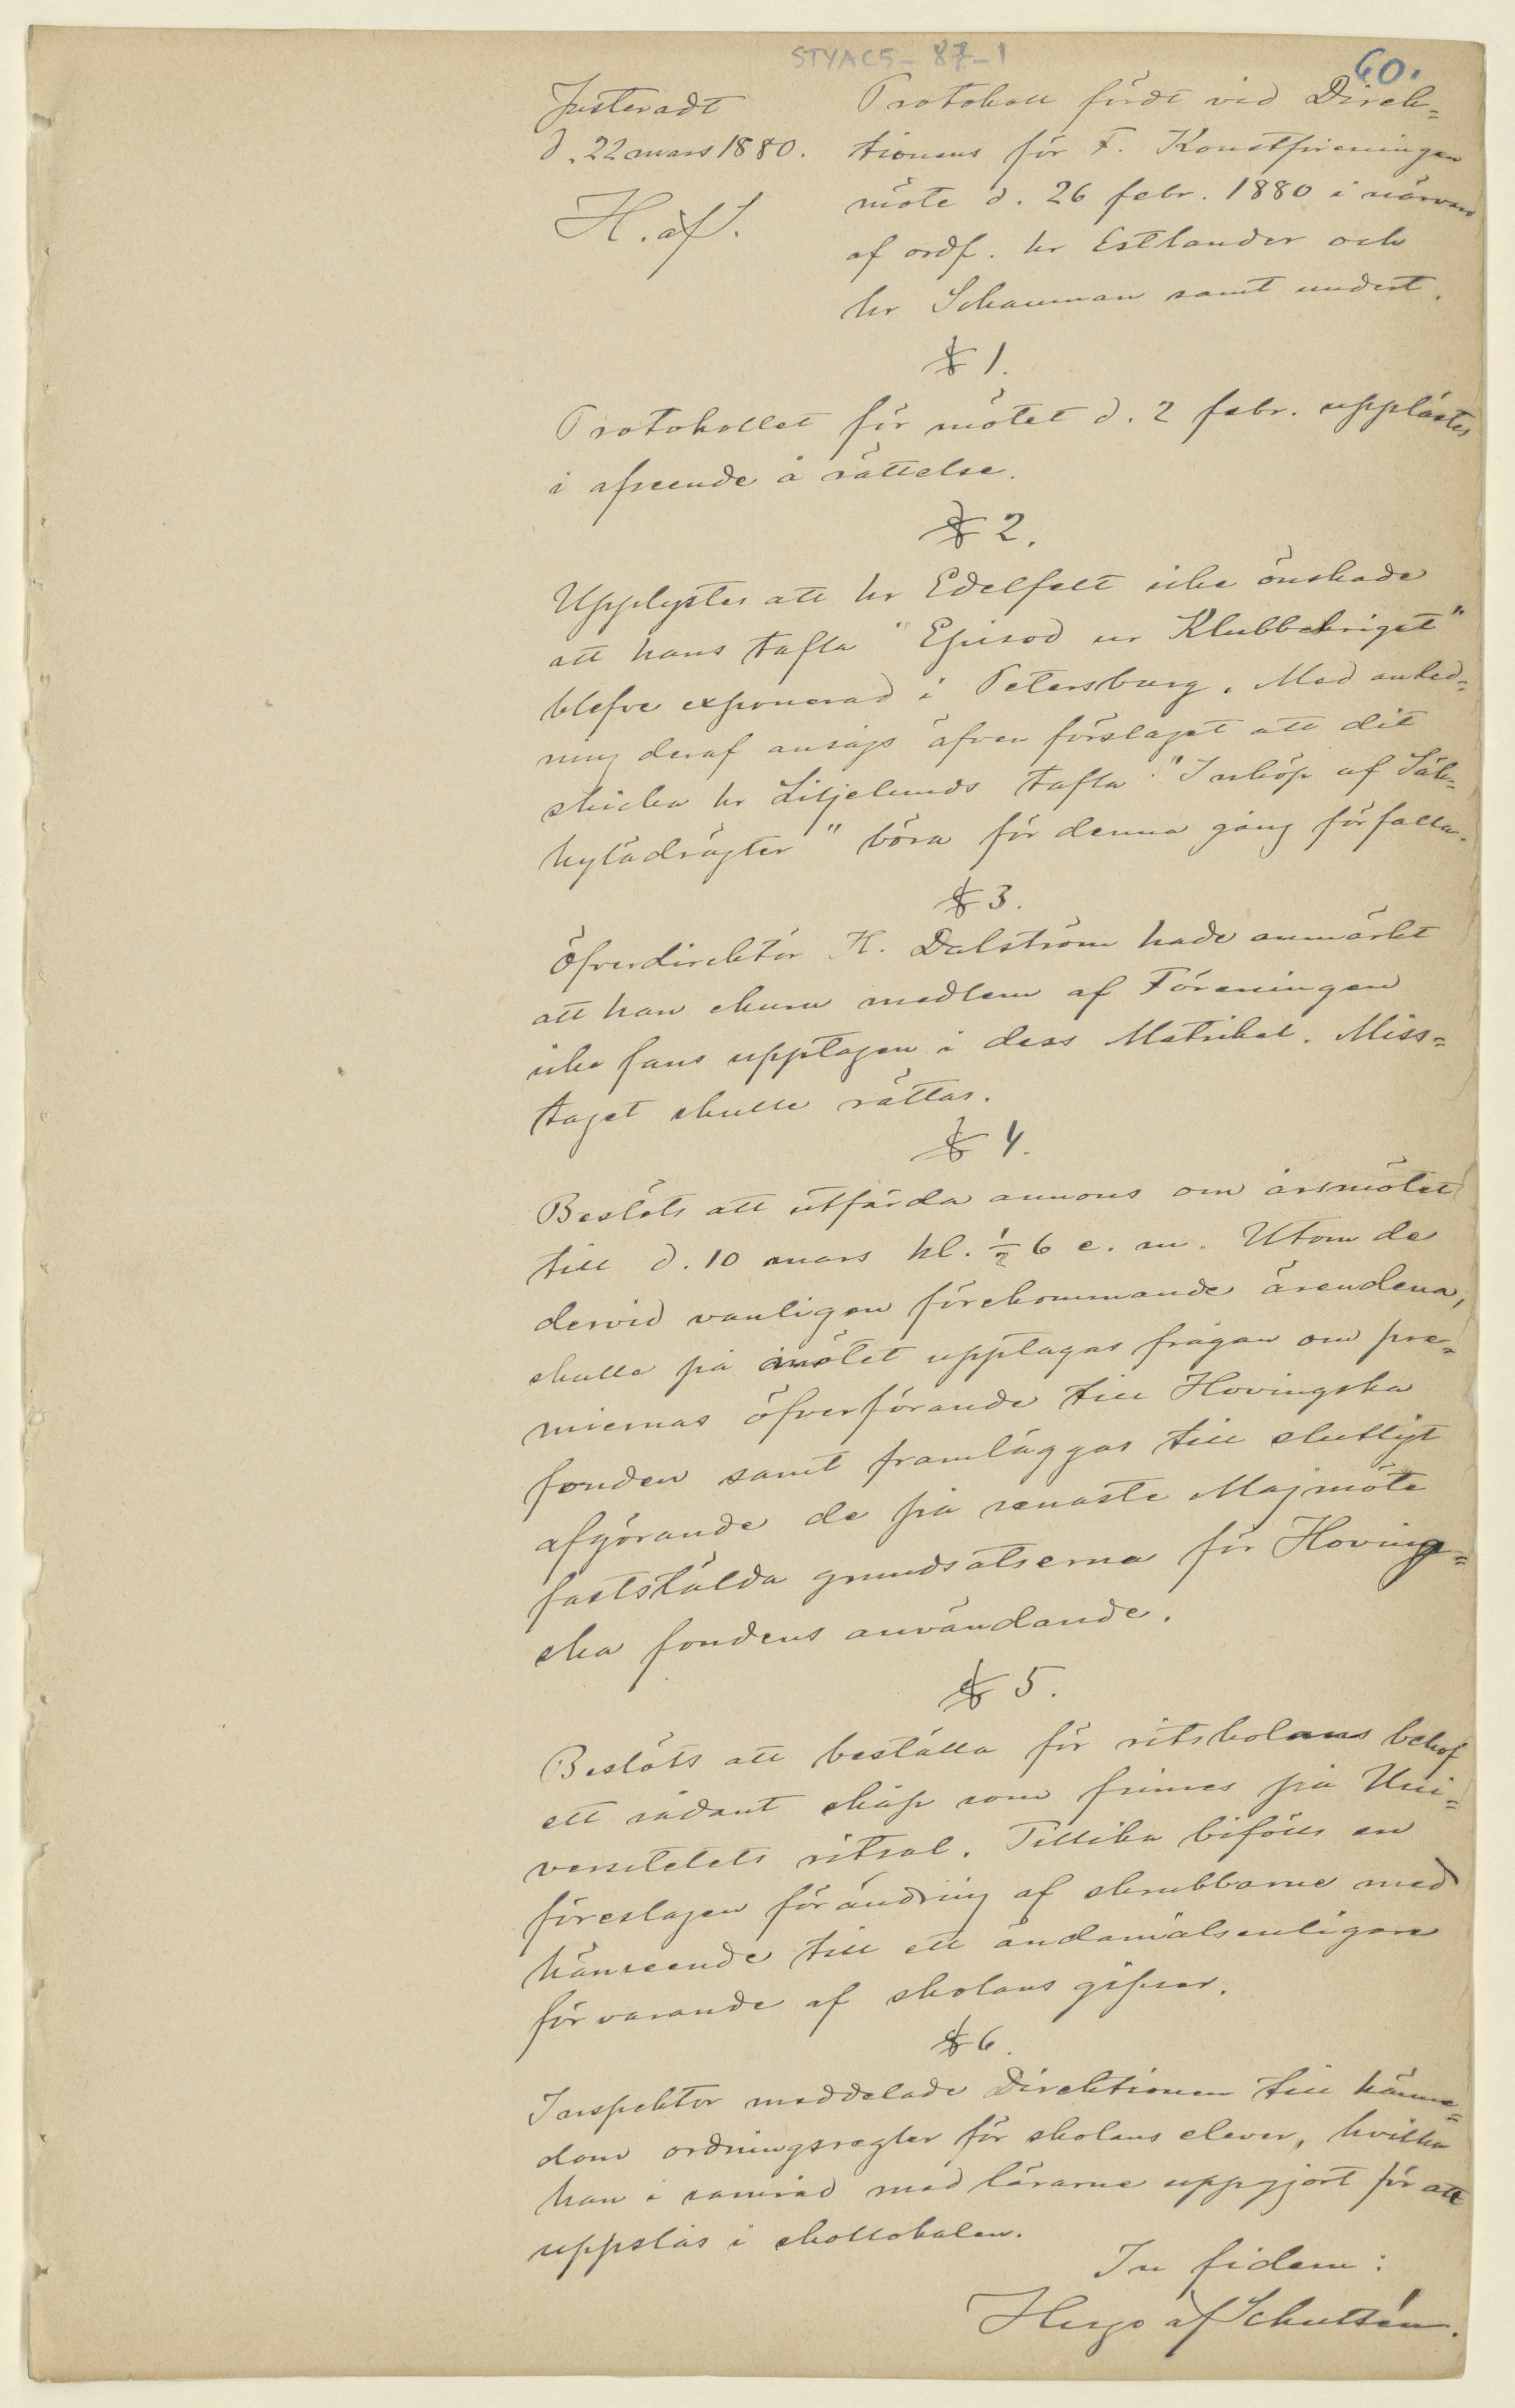 STYAC5-87-1
60.
Justeradt
d. 22 mars 1880.
H. af S.
Protokoll fördt vid Direk=
tionens för F. Konstföreningen
möte d. 26 febr. 1880 i närvaro
af ordf. hr Estlander och
hr Schauman samt undert.
§ 1.
Protokollet för mötet d. 2 febr. upplästes
i afseende å rättelse.
§ 2.
Upplystes att hr Edelfelt icke önskade
att hans tafla "Episod ur Klubbekriget"
blefve exponerad i Petersburg. Med anled=
ning deraf ansågs äfven förslaget att dit
skicka hr Liljelunds tafla "Inköp af Säk=
kylädrägter" böra för denna gång förfalla.
§ 3.
Öfverdirektör K. Dalström hade anmärkt
att han ehuru medlem af Föreningen
icke fans upptagen i dess Matrikel. Miss=
taget skulle rättas.
§ 4.
Beslöts att utfärda annons om årsmötet
till d. 10 mars kl. ½ 6 e. m. Utom de
dervid vanligen förekommande ärendena,
skulle på mötet upptagas frågan om pre=
miernas öfverförande till Hovingska
fonden samt framläggas till slutligt
afgörande de på senaste Majmöte
faststälda grundsatserna för Hoving=
ska fondens användande.
§ 5.
Beslöts att beställa för ritskolans behof
ett sådant skåp som finnes på Uni=
versitetets ritsal. Tillika bifölls en
föreslagen förändring af skrubbarne med
hänseende till ett ändamålsenligare
förvarande af skolans gipser.
§ 6.
Inspektor meddelade Direktionen till känne=
dom ordningsregler för skolans elever, hvilka
han i samråd med lärarne uppgjort för att
uppslås i skollokalen.
In fidem:
Hugo af Schultén.